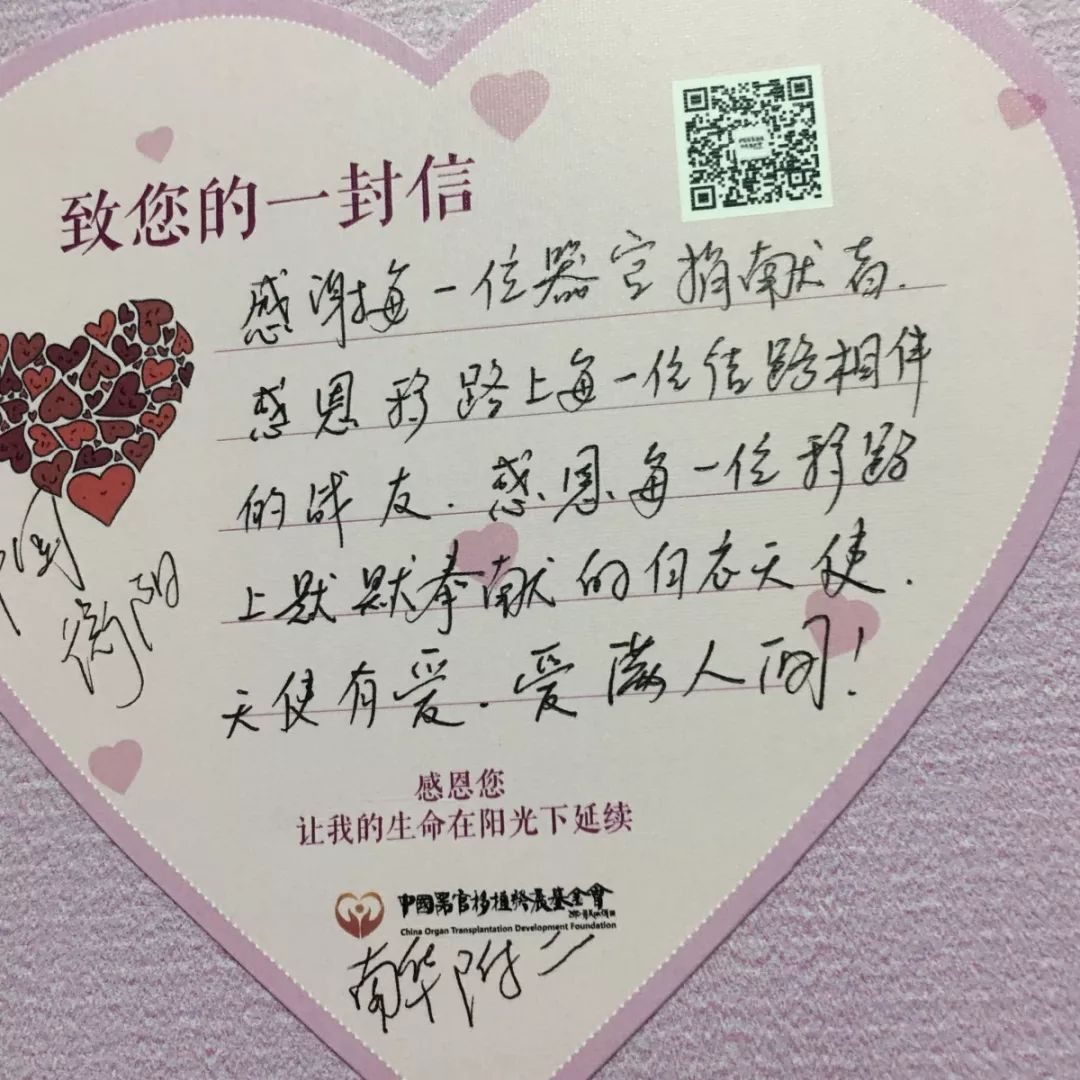 致您的一封信
感谢每一位器官捐献者.
感恩移路上每一位结路相伴
的战友.感恩每一位移路
上默默奉献的白衣天使.
天使有爱.爱满人间!
衡阳
感恩您
让我的生命在阳光下延续
中國器官移植發展基金會
China Organ Transplantation Development Foundation
南华附二